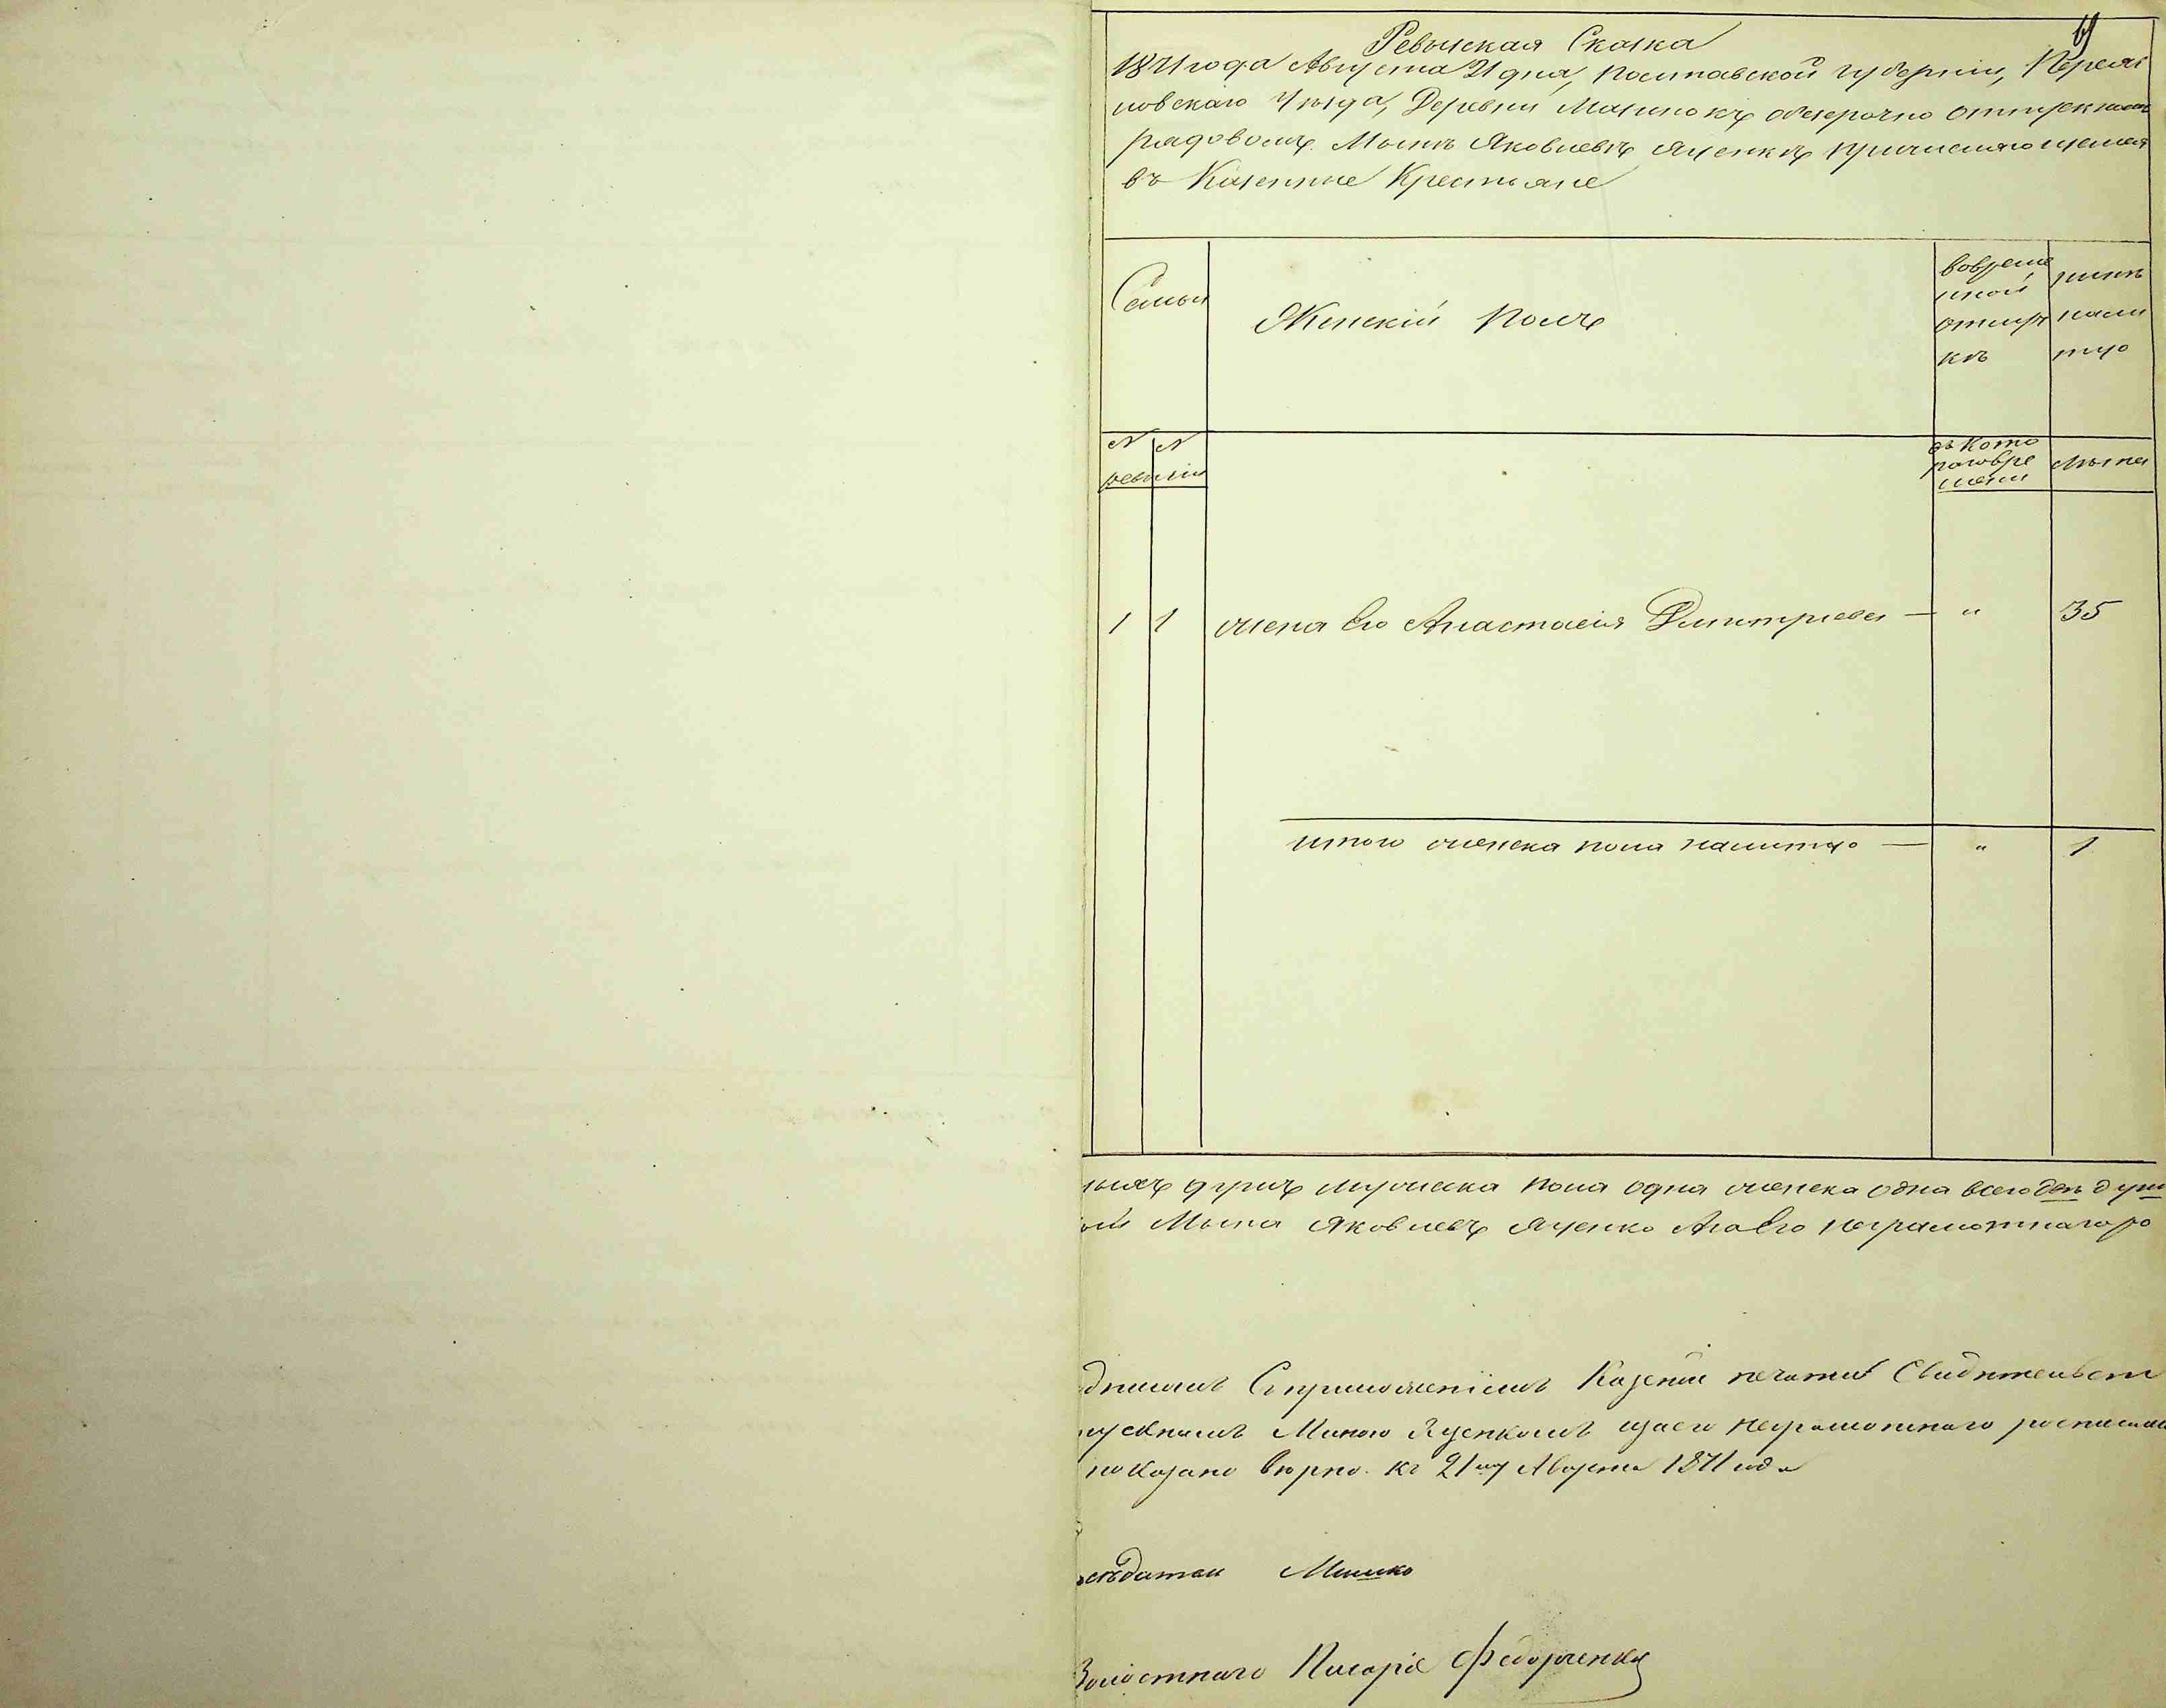 Ревизская Сказка
1871 года Августа 21 дня, Полтавской губерніи, Переяс
ловскаго Уезда, Деревни Мазинокъ обсерочно отпускном
рядовомъ Мыне Яковлевѣ Яценкѣ причисляющемся
въ Казенные Крестьяне
Семьи
Женскій Полъ
вовреме
нной
отлуч
кѣ
нынѣ
нали
тцо
N N
ревизіи
съ кото
раговре
мени
Лѣта
1 1 жена Его Анастасія Дмитріева — " 35
итого женска пола налитцо — " 1
душъ мужеска пола одна женска одна всего двѣ душ
Мына Яковлевъ Яценко Аза Его неграмотнаго ро
Съ приложеніемъ Казенной печати Свидѣтельст
Миною Яценкомъ изаего неграмотнаго росписал
показано вѣрно. Къ 21му Августа 1871 года
Мишко
Волостнаго Писаря Федорченка